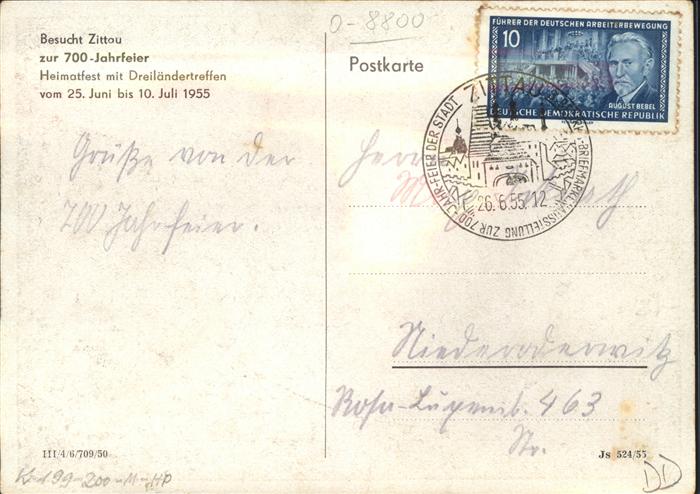 0-8800
Besucht Zittau
zur 700-Jahrfeier
Heimatfest mit Dreiländertreffen
vom 25. Juni bis 10. Juli 1955
Grüße von der
700 Jahrfeier.
Postkarte
FÜHRER DER DEUTSCHEN ARBEITERBEWEGUNG
10
AUGUST BEBEL
DEUTSCHE DEMOKRATISCHE REPUBLIK
ZITTAU
BRIEFMARKENAUSSTELLUNG ZUR 700-JAHR-FEIER DER STADT
26.6.55.12
Herrn
Niederoderwitz
Rosa-Luxemb. 463
Str.
III/4/6/709/50
Js 524/55
DD